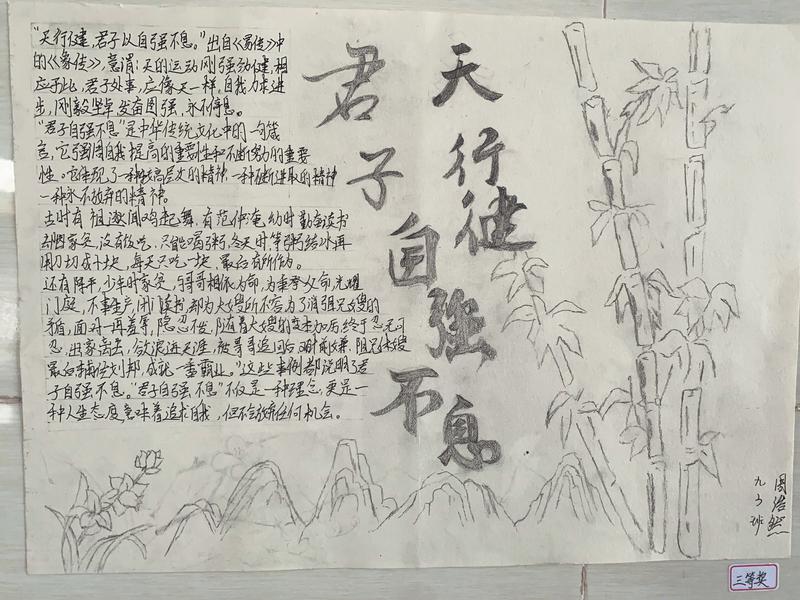 "天行健,君子以自强不息。"出自《易传》中
的《象传》,意谓:天的运动刚强劲健,相
应于此,君子处事,应像天一样,自我力求进
步,刚毅坚卓,发奋图强,永不停息。
"君子自强不息"是中华传统文化中的一句箴
言,它强调自我提高的重要性和不断努力的重要
性。它体现了一种的精神,一种不断进取的精神
一种永不放弃的精神。
古时有祖逖闻鸡起舞,有范仲淹,幼时勤奋读书
家贫,没有饭吃,只能喝粥,冬天时,等粥结冰再
用刀切成十块,每天只吃一块,最后有所作为。
还有陈平,少年时家贫,与哥哥相依为命,为秉父命,光耀
门庭,不事生产,闭门读书,却为大嫂所不容为了消弭兄嫂的
矛盾,面对一再羞辱,隐忍不发,随着大嫂的变本加厉终于忍无可
忍,出家离去,欲浪迹天涯,被哥哥追回后,不计前嫌,阻兄休嫂
最后辅佐刘邦,成就一番霸业。"这些事例都说明了君
子自强不息。"君子自强不息"不仅是一种理念,更是一
种人生态度意味着追求自我,但不会放弃任何机会。
天行健
君子自强不息
周浩然
九3班
三等奖